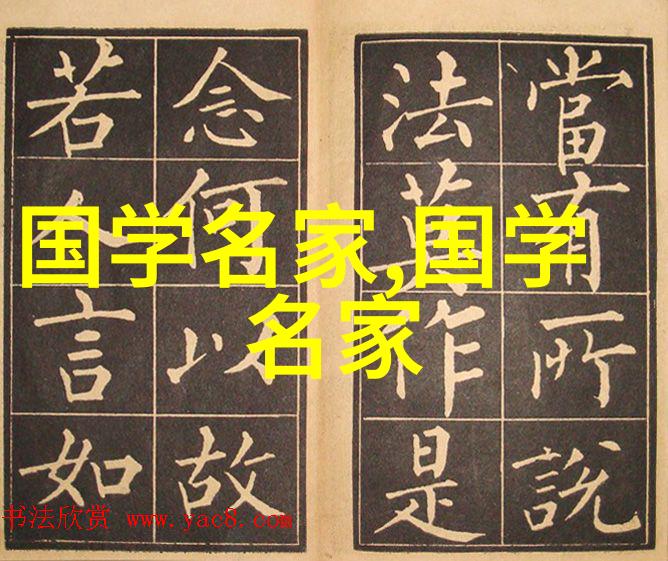 國学名家,国学
名家
當有所說
法莫作是
念何以故
若人言如
书法欣赏 www.yac8.com